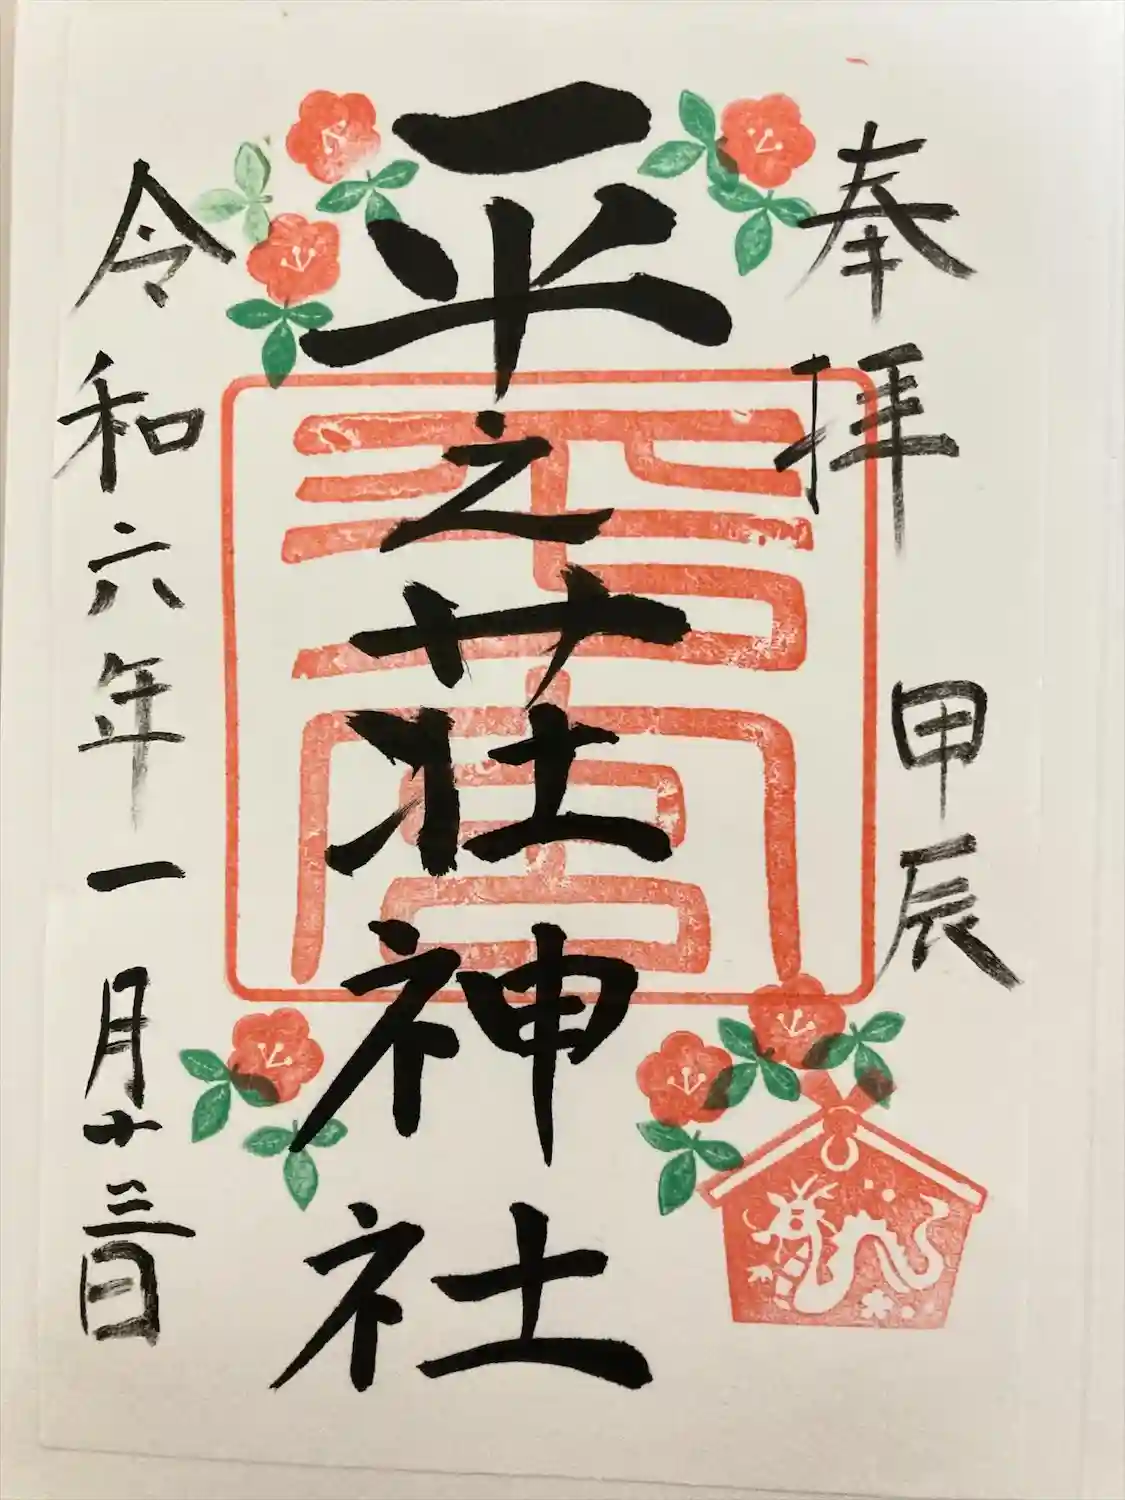 奉拝
甲辰
平之荘神社
令和六年一月十三日